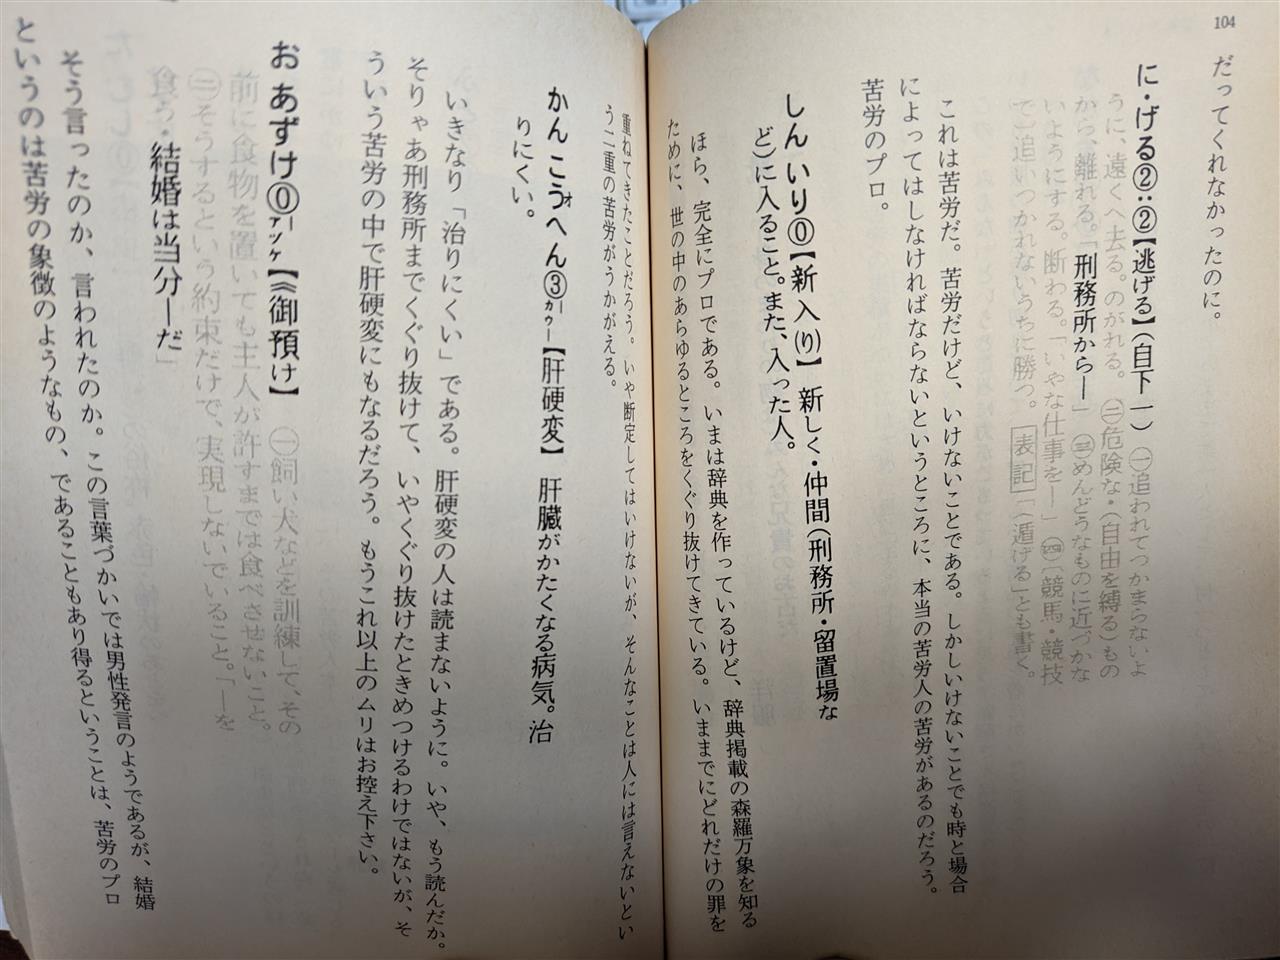 104
だってくれなかったのに。
に・げる②:②【逃げる】(自下一) ㊀追われてつかまらないよ
うに、遠くへ去る。のがれる。 ㊁危険な・(自由を縛る)もの
から、離れる。「刑務所から―」 ㊂めんどうなものに近づかな
いようにする。断わる。「いやな仕事を―」 ㊃〔競馬・競技
で〕追いつかれないうちに勝つ。 表記 「遁げる」とも書く。
これは苦労だ。苦労だけど、いけないことである。しかしいけないことでも時と場合
によってはしなければならないというところに、本当の苦労人の苦労があるのだろう。
苦労のプロ。
しんいり⓪【新入(り)】 新しく・仲間(刑務所・留置場な
ど)に入ること。また、入った人。
ほら、完全にプロである。いまは辞典を作っているけど、辞典掲載の森羅万象を知る
ために、世の中のあらゆるところをくぐり抜けてきている。いままでにどれだけの罪を
重ねてきたことだろう。いや断定してはいけないが、そんなことは人には言えないとい
う二重の苦労がうかがえる。
かんこうオへん③―カウ―【肝硬変】 肝臓がかたくなる病気。治
りにくい。
いきなり「治りにくい」である。肝硬変の人は読まないように。いや、もう読んだか。
そりゃあ刑務所までくぐり抜けて、いやくぐり抜けたときめつけるわけではないが、そ
ういう苦労の中で肝硬変にもなるだろう。もうこれ以上のムリはお控え下さい。
おあずけ⓪―アヅケ【《御預け】 ㊀飼い犬などを訓練して、その
前に食物を置いても主人が許すまでは食べさせないこと。
㊁そうするという約束だけで、実現しないでいること。「―を
食う・結婚は当分―だ」
そう言ったのか、言われたのか。この言葉づかいでは男性発言のようであるが、結婚
というのは苦労の象徴のようなもの、であることもあり得るということは、苦労のプロ